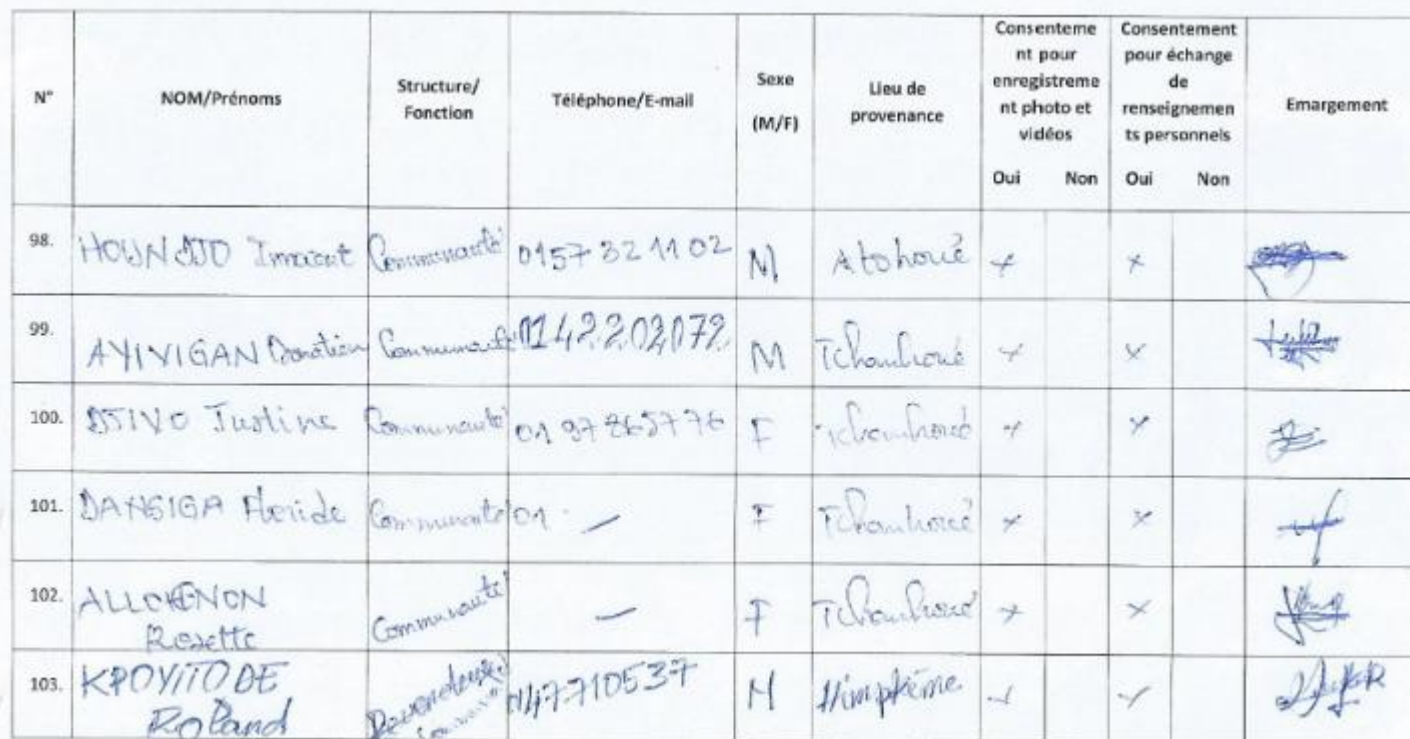 N° NOM/Prénoms Structure/Fonction Téléphone/E-mail Sexe (M/F) Lieu de provenance Consentement pour enregistrement photo et vidéos Oui Non Consentement pour échange de renseignements personnels Oui Non Emargement
98. HOUNDJO Communauté 0157 32 11 02 M Atohoué x x
99. AYIVIGAN Donatien Communauté 0142202072 M Tchanhoué x x
100. DJIVO Justine Communauté 01 97865776 F Tchanhoué x x
101. DANSIGA Floride Communauté 01 — F Tchanhoué x x
102. ALLOKENON Rosette Communauté — F Tchanhoué x x
103. KPOYITODE Roland 0147710537 M x x